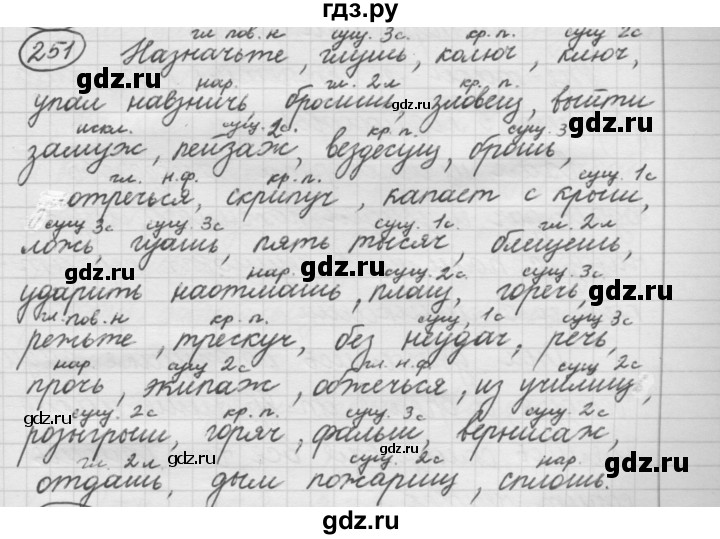 гдз.ру
гл пов. н сущ. 3с. кр. п. сущ 2с
251 Назначьте, глушь, колюч, ключ,
нар. гл. 2л кр. п.
упал навзничь, бросишь, зловещ, выйти
gdz.ru
gdz.ru
искл. сущ. 2с. кр. п. сущ. 3
замуж, пейзаж, вездесущ, брошь,
gdz.ru
gdz.ru
гл. н.ф. кр. п. сущ. 1с
отречься, скрипуч, капает с крыш,
gdz.ru
сущ 3с сущ. 3с сущ. 1с гл. 2л
ложь, гуашь, пять тысяч, блещешь,
gdz.ru
gdz.ru
нар. сущ. 2с. сущ. 3с
ударить наотмашь, плащ, горечь,
gdz.ru
гл. пов. н кр. п. сущ, 1с сущ 3с
режьте, трескуч, без неудач, речь,
нар. сущ 2с гл. н.ф. сущ 2с
прочь, экипаж, обжечься, из училищ,
gdz.ru
gdz.ru
сущ. 2с кр. п. сущ. 3с сущ. 2с
розыгрыш, горяч, фальшь, вернисаж,
gdz.ru
gdz.ru
gdz.ru
гл. 2 л. сущ. 2с нар.
отдашь, дым пожарищ, сплошь.
gdz.ru
gdz.ru